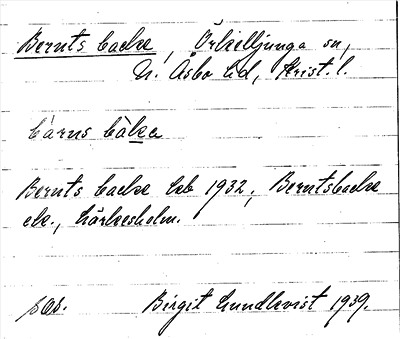 Bernts backe, Örkelljunga sn,
N. Åsbo hd, Krist. l.
bárns bàka
Bernts backe hb 1932; Berntsbacke
ek., Lärkesholm.
Birgit Lundkvist 1939.